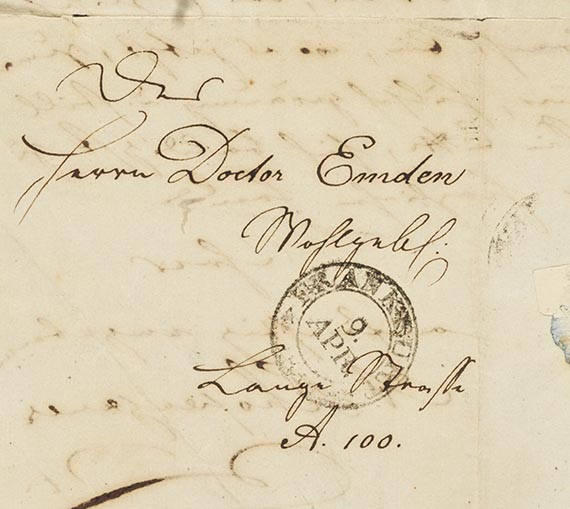 Des
Herrn Doctor Emden
Wohlgeb:
FRANKFURT
9.
APR.
Lange Strasse
A. 100.